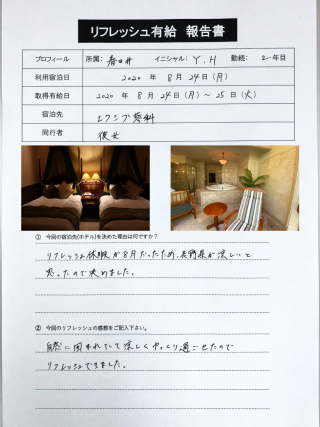 リフレッシュ有給 報告書
プロフィール 所属: 春日井 イニシャル: Y.H 勤続: 2年目
利用宿泊日 2020 年 8月 24日(月)
取得有給日 2020 年 8月 24日(月)～ 25日(火)
宿泊先 エクシブ蓼科
同行者 彼女
① 今回の宿泊先(ホテル)を決めた理由は何ですか?
リフレッシュ休暇が8月だったため、長野県が涼しいと
思ったので決めました。
② 今回のリフレッシュの感想をご記入下さい。
自然に囲まれていて涼しくゆっくり過ごせたので
リフレッシュできました。